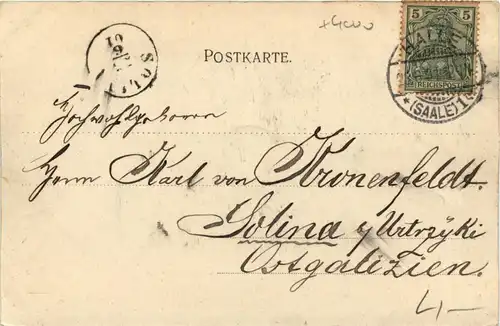 POSTKARTE.
5 5
REICHSPOST
HALLE
*(SAALE)1
Hochwohlgeboren
Herrn Karl von Kronenfeldt.
Solina y Urtrzÿki
Ostgalizien.
4,—